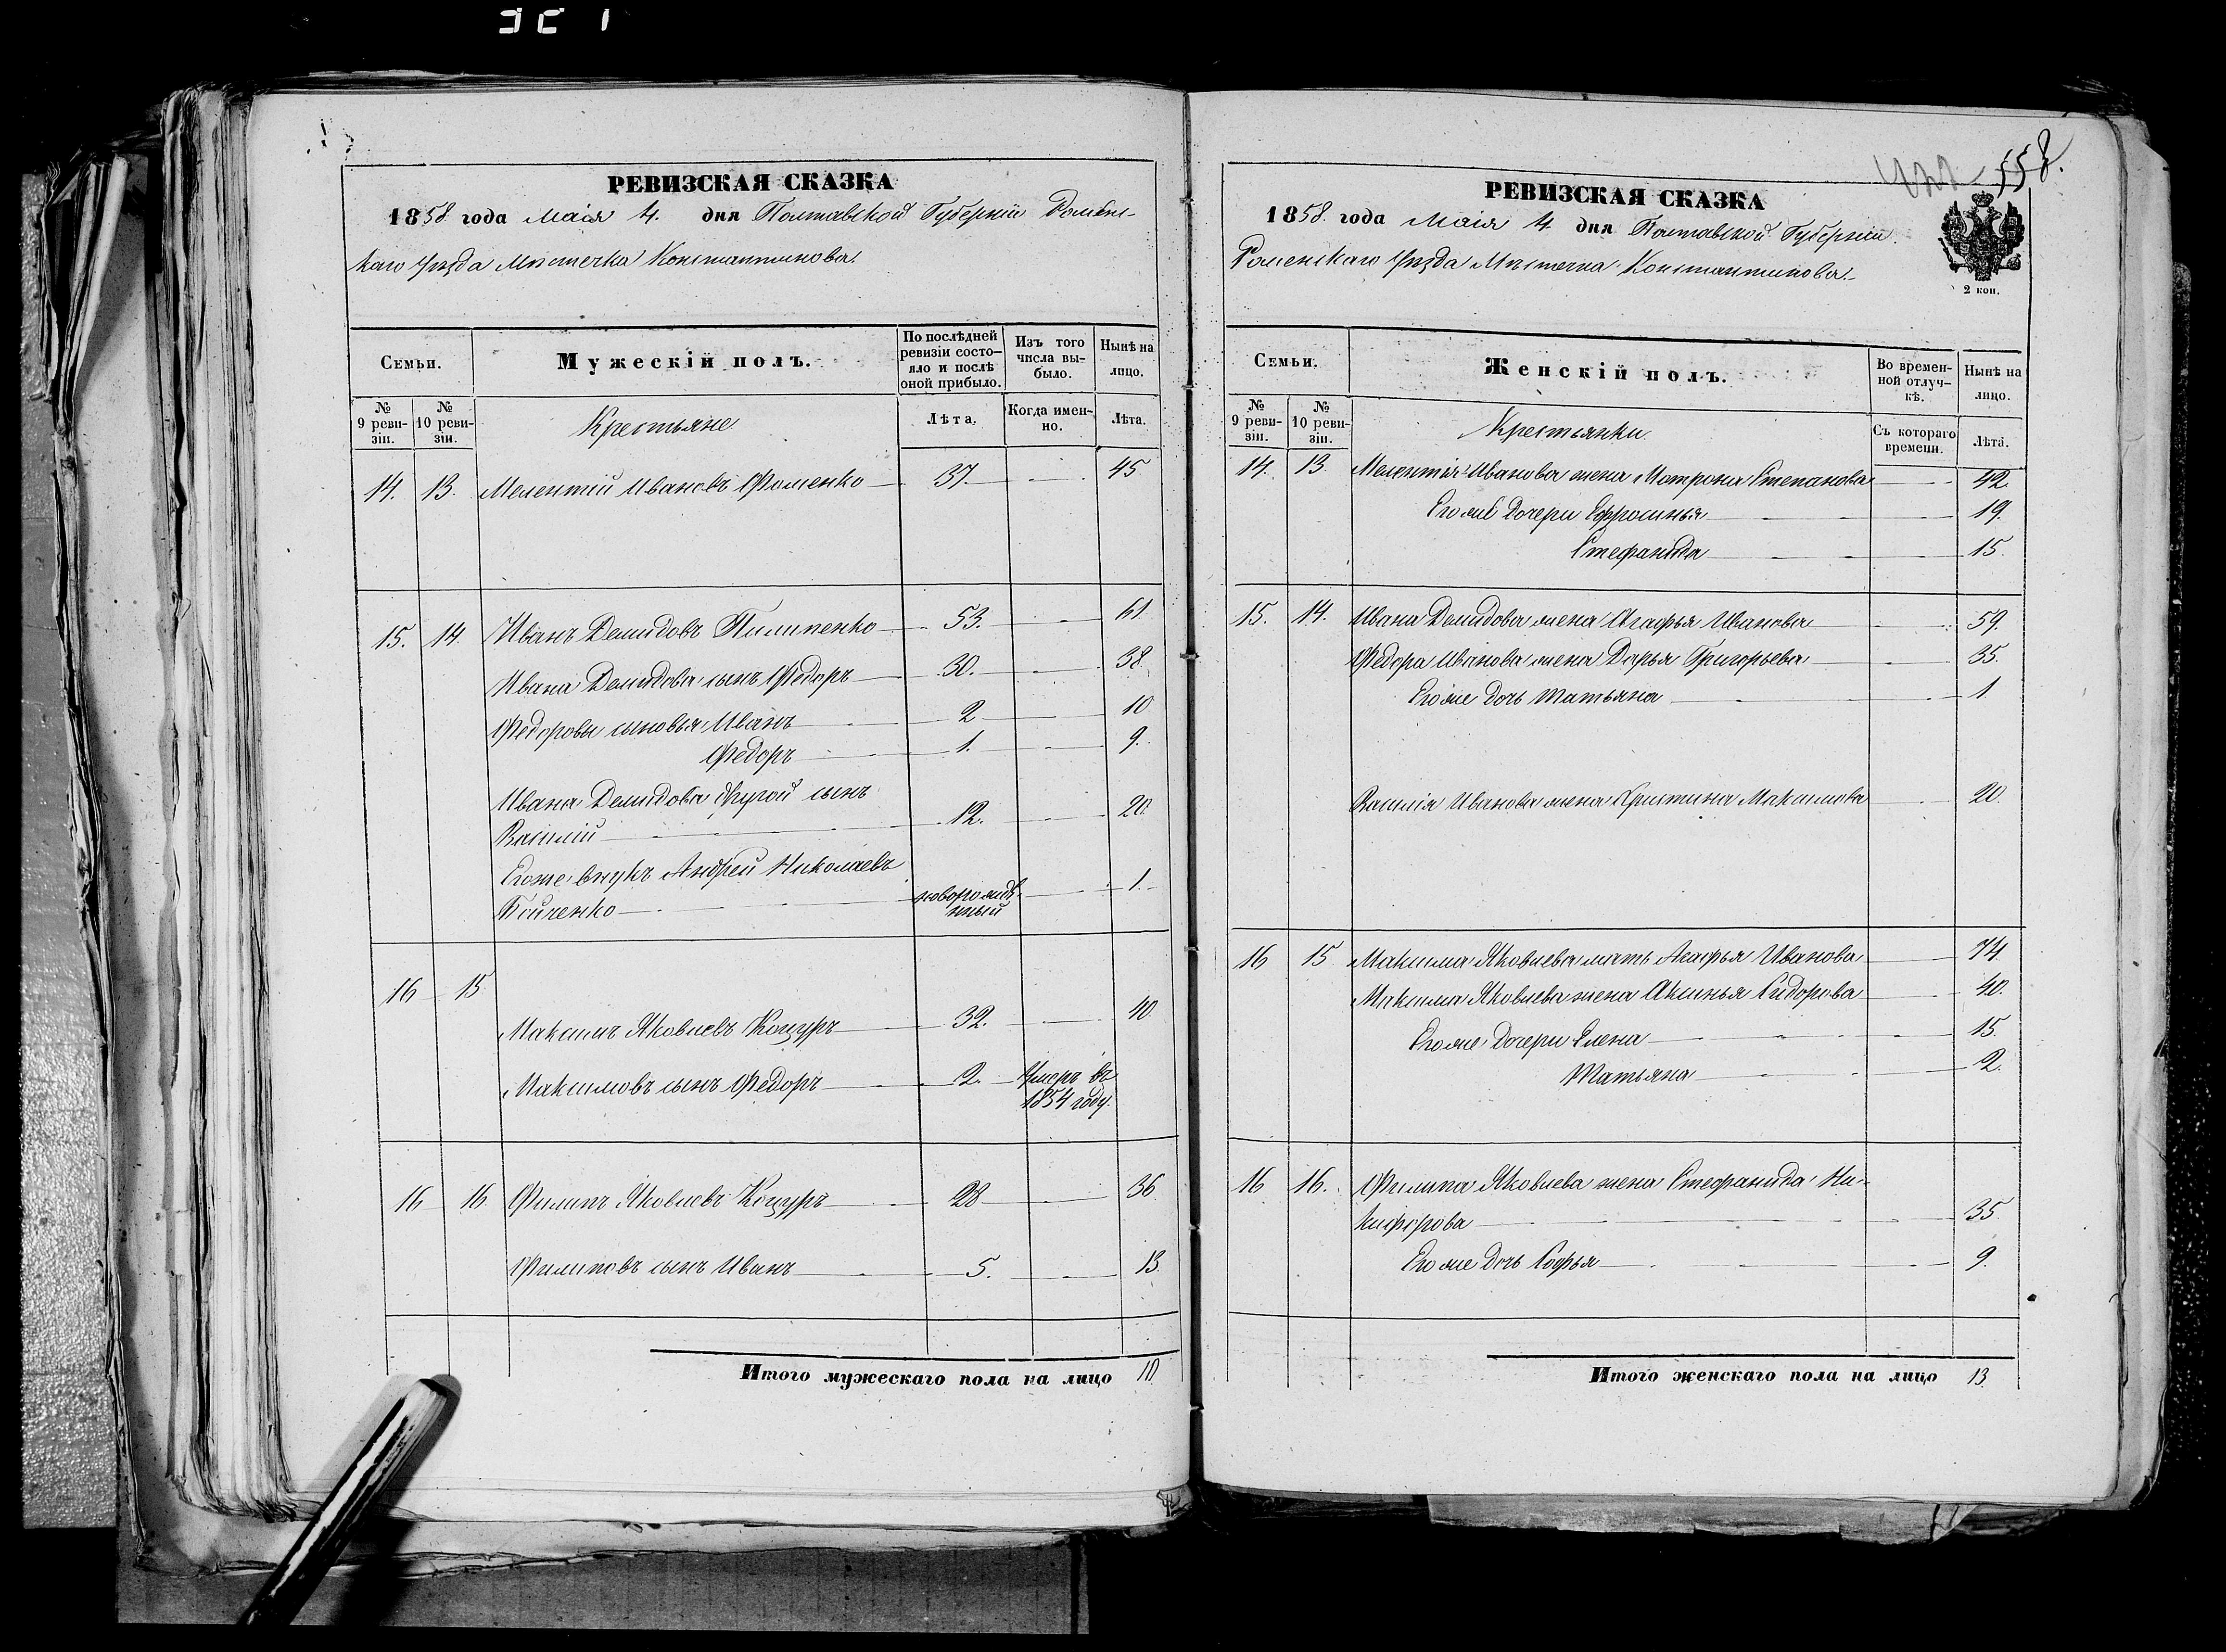 РЕВИЗСКАЯ СКАЗКА
1858. года Маія 4. дня Полтавской Губерніи Ромен-
скаго Уѣзда Мѣстечка Константинова.
Семьи.
Мужескій полъ.
По послѣдней ревизіи состояло и послѣ оной прибыло.
Изъ того числа выбыло.
Нынѣ на лицо.
№ 9 ревизіи.
№ 10 ревизіи.
Крестьяне
Лѣта.
Когда именно.
Лѣта.
14. 13. Мелентій Ивановъ Фоменко 37. 45
15. 14. Иванъ Демидовъ Пилипенко 53. 61
Ивана Демидова сынъ Федоръ 30. 38
Федоровы сыновья Иванъ 2 10
Федоръ 1. 9.
Ивана Демидова другой сынъ
Василій 12. 20.
Егоже внукъ Андрей Николаевъ
Бойченко новорожденный 1.
16 15
Максимъ Яковлевъ Коцуръ 32. 40
Максимовъ сынъ Федоръ 2. Умеръ въ
1854 году.
16 16. Филипъ Яковлевъ Коцуръ 28 36
Филиповъ сынъ Иванъ 5. 13.
Итого мужескаго пола на лицо 10.
558.
РЕВИЗСКАЯ СКАЗКА
1858. года Маія 4. дня Полтавской Губерніи.
Роменскаго Уѣзда Мѣстечка Константинова.
2 коп.
Семьи.
Женскій полъ.
Во временной отлучкѣ.
Нынѣ на лицо.
№ 9 ревизіи.
№ 10 ревизіи.
Крестьянки
Съ котораго времени.
Лѣта.
14. 13. Мелентія Иванова жена Мотрона Степанова 42.
Егоже дочери Ефросинья 19.
Стефанида 15.
15. 14. Ивана Демидова жена Агафья Иванова 59.
Федора Иванова жена Дарья Григорьева 35.
Егоже дочь Татьяна 1
Василія Иванова жена Христина Максимова 20.
16 15 Максима Яковлева мать Агафья Иванова 74
Максима Яковлева жена Аксинья Сидорова 40.
Егоже дочери Елена 15.
Татьяна 2.
16 16. Филипа Яковлева жена Стефанида Ни-
кифорова 35.
Егоже дочь Софья 9.
Итого женскаго пола на лицо 13.